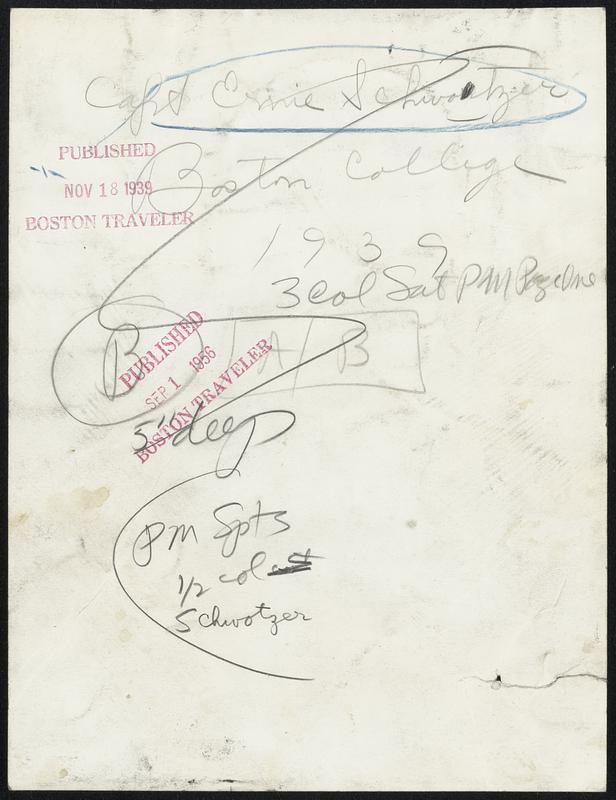 Capt Ernie Schwotzer
PUBLISHED
NOV 18 1939
BOSTON TRAVELER
Boston College
1939
3 col Sat PM Page One
B
A/B
PUBLISHED
SEP 1 1956
BOSTON TRAVELER
5" deep
PM Spts
1/2 col
Schwotzer